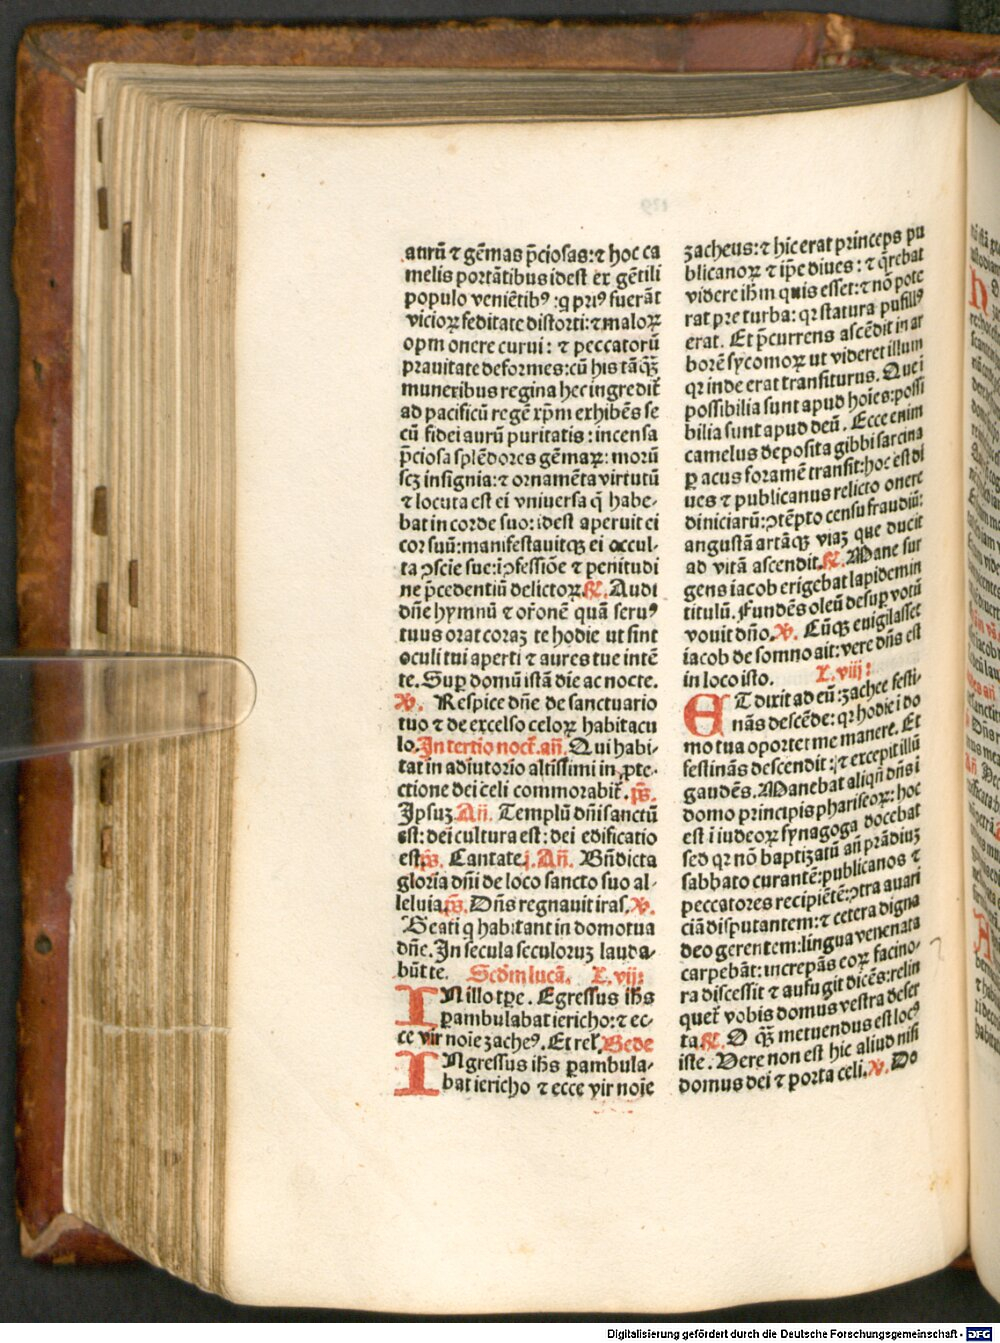 aurū ⁊ gēmas p̄ciosas:⁊ hoc ca
melis portātibus idest ex gētili
populo veniētibꝰ :q priꝰ fuerāt
vicioꝝ feditate distorti:⁊ maloꝝ
opm onere curui: ⁊ peccatorū
prauitate deformes:cū his tāꝗ̄ꝫ
muneribus regina hec ingredit̄
ad pacificū regē xp̄m exhibēs se
cū fidei aurū puritatis: incensa
p̄ciosa splēdores gēmaꝝ: morū
scꝫ insignia:⁊ ornamēta virtutū
⁊ locuta est ei vniuersa q̄ habe-
bat in corde suo:idest aperuit ei
cor suū:manifestauitqꝫ ei occul-
ta ꝯscie sue:ī ꝓfessiōe ⁊ penitudi
ne p̄cedentiū delictoꝝ.℟. Audi
dn̄e hymnū ⁊ or̄onē quā seruꝰ
tuus orat coraꝫ te hodie ut sint
oculi tui aperti ⁊ aures tue intē
te. Suꝑ domū istā die ac nocte.
℣. Respice dn̄e de sanctuario
tuo ⁊ de excelso celoꝝ habitacu
lo. In tertio noct̄. an̄. Qui habi-
tat in adiutorio altissimi in ꝓte-
ctione dei celi commorabit̄. ps̄.
Ipsuꝫ. An̄. Templū dn̄i sanctū
est: dei cultura est: dei edificatio
est. ps̄. Cantate. j. An̄. Bn̄dicta
gloria dn̄i de loco sancto suo al-
leluia. ps̄. Dn̄s regnauit iras. ℣.
Beati q habitant in domo tua
dn̄e. In secula seculoruꝫ lauda-
būt te. Scd̄m lucā. L. vij:
IN illo tp̄e. Egressus ih̄s
ꝑambulabat iericho:⁊ ec-
ce vir noīe zacheꝰ. Et rel̄. Bede
INgressus ih̄s ꝑambula-
bat iericho ⁊ ecce vir noīe
zacheus:⁊ hic erat princeps pu
blicanoꝝ ⁊ ip̄e diues: ⁊ q̄rebat
videre ih̄m quis esset:⁊ nō pote
rat pre turba: qꝛ statura pusillꝰ
erat. Et p̄currens ascēdit in ar
borē sycomoꝝ ut videret illum
qꝛ inde erat transiturus. Que ī
possibilia sunt apud hoīes:possi
bilia sunt apud deū. Ecce enim
camelus deposita gibbi sarcina
ꝑ acus foramē transit:hoc est di
ues ⁊ publicanus relicto onere
diuiciarū:ꝯtēpto censu fraudiū:
angustā artāqꝫ viaꝫ que ducit
ad vitā ascendit.℟. Mane sur
gens iacob erigebat lapidem in
titulū. Fundēs oleū desuꝑ votū
vouit dn̄o. ℣. Cūqꝫ euigilasset
iacob de somno ait: vere dn̄s est
in loco isto. L. viij:
ET dixit ad eū:zachee festi-
nās descēde: qꝛ hodie ī do
mo tua oportet me manere. Et
festinās descendit: ⁊ excepit illū
gaudēs. Manebat aliqn̄ dn̄s ī
domo principis phariseoꝝ: hoc
est ī iudeoꝝ synagoga docebat
sed qꝛ nō baptizatū an̄ prādiuꝫ
sabbato curantē:publicanos ⁊
peccatores recipiētē:ꝯtra auari
ciā disputantem:⁊ cetera digna
deo gerentem:lingua venenata
carpebāt:increpās eoꝝ facino-
ra discessit ⁊ aufugit dicēs:relin
quet̄ vobis domus vestra deser
ta.℟. O ꝗ̄ꝫ metuendus est locꝰ
iste. Vere non est hic aliud nisi
domus dei ⁊ porta celi. ℣. Do
Digitalisierung gefördert durch die Deutsche Forschungsgemeinschaft - DFG